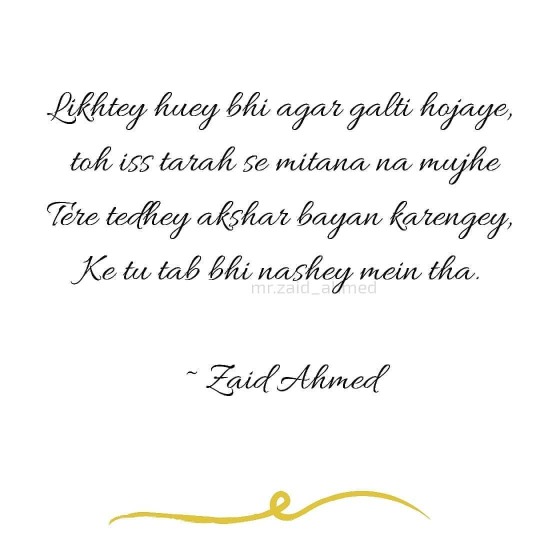 Likhtey huey bhi agar galti hojaye,
toh iss tarah se mitana na mujhe
Tere tedhey akshar bayan karengey,
Ke tu tab bhi nashey mein tha.
mr.zaid_ahmed
~ Zaid Ahmed